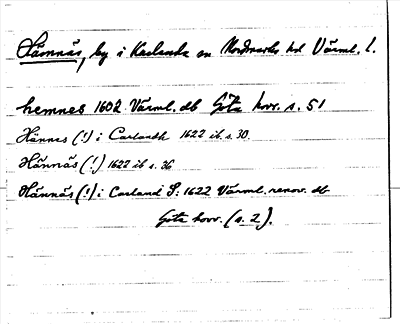 Hämnäs, by i Karlanda sn Nordmarks hd Värml. l.
hemnes 1602 Värml. db Göta hovr. s. 51
Hännes (!) i Carlanth 1622 ib s. 30.
Hännäs (!) 1622 ib s. 36
Hännäs (!) i Carland S: 1622 Värml. renov. db
Göta hovr. (s. 2).